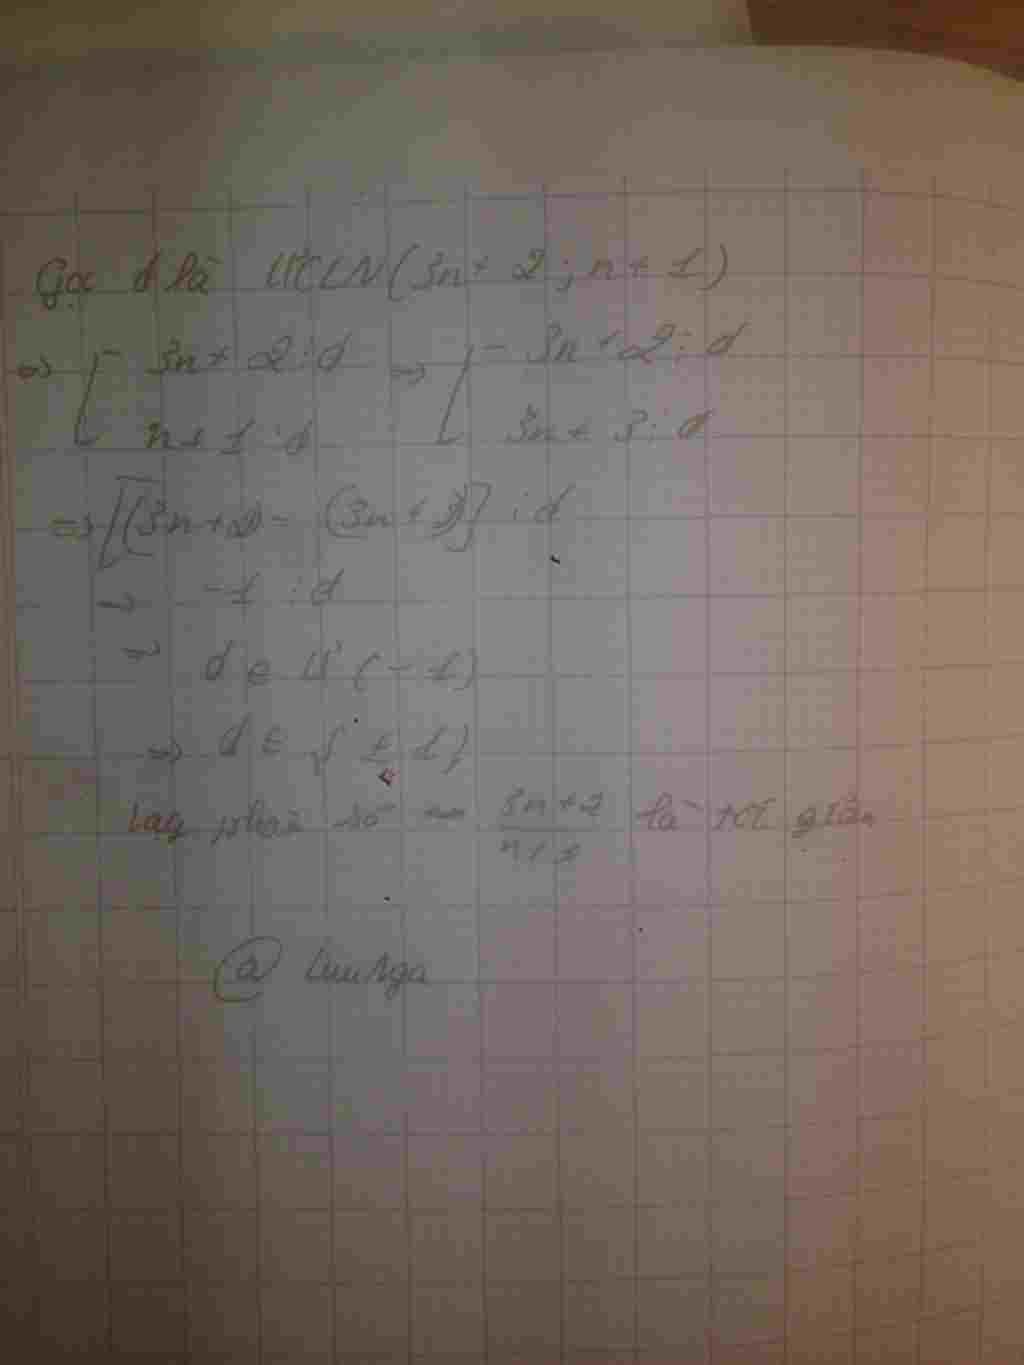 Gọi d là ƯCLN(3n + 2 ; n + 1)
=> [ 3n + 2 ⋮ d => [ 3n + 2 ⋮ d
n + 1 ⋮ d 3n + 3 ⋮ d
=> [(3n + 2) - (3n + 3)] ⋮ d
=> -1 ⋮ d
=> d ∈ Ư (-1)
=> d ∈ { ± 1}
phân số 3n + 2 / n + 1 là tối giản
@ LưuNga